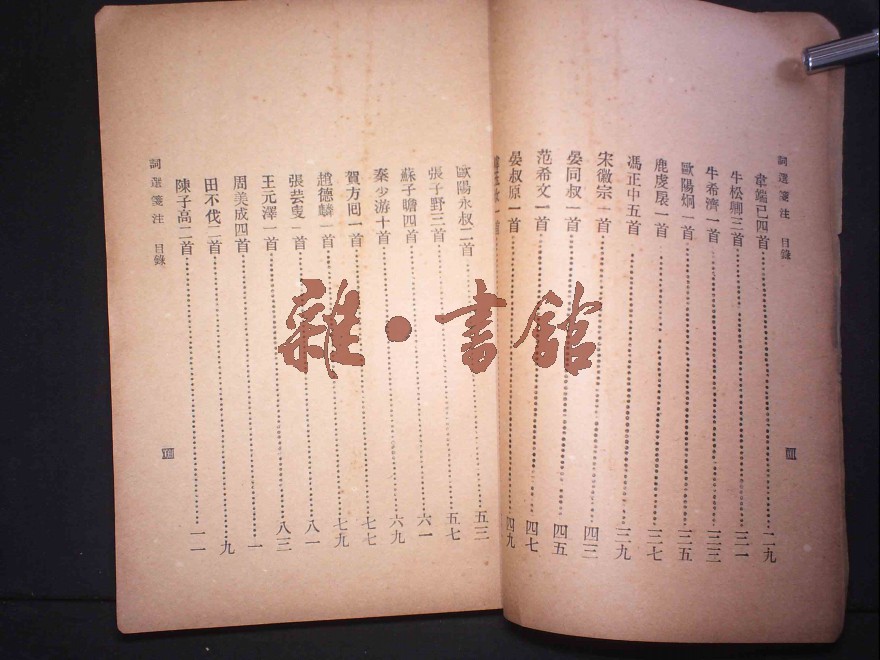 詞選箋注 目錄
韋端己四首 二九
牛松卿三首 三一
牛希濟一首 三三
歐陽炯一首 三五
鹿虔扆一首 三七
馮正中五首 三九
宋徽宗一首 四三
晏同叔一首 四五
范希文一首 四七
晏叔原一首 四九
一首
歐陽永叔二首 五三
張子野三首 五七
蘇子瞻四首 六一
秦少游十首 六九
賀方回一首 七七
趙德麟一首 七九
張芸叟一首 八一
王元澤一首 八三
周美成四首 一
田不伐二首 九
陳子高二首 一一
詞選箋注 目錄
雜·書館